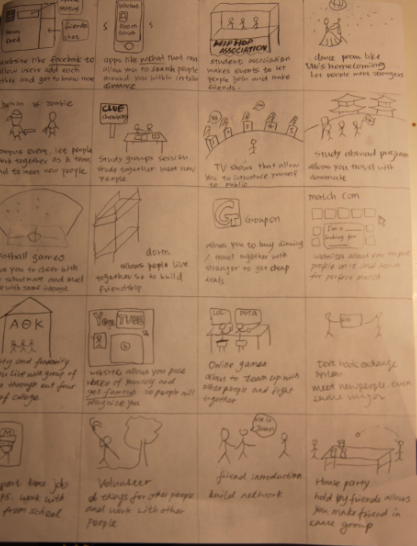 website like facebook to
allow users add each
and get to know more
apps like wechat that can
allow you to search people
around you within certain
distance
HIP HOP
ASSOCIATION
student association
makes events to let
people join and make
friends
dance prom like
homecoming
Let people meet strangers
humans vs zombie
campus event, let people
work together as a team
and to meet new people
CLUE
chemistry
Study groups session
study together meet new
people
TV shows that allow
you to introduce yourself
to public
Study abroad program
allows you travel with
football games
you to cheer with
with same
dorm
allows people live
together so to build
friendship
G
Groupon
allow you to buy dining
/ travel together with
stranger to get cheap
deals
match.com
I'm
looking for
website allows you to
people
perfect match
ΑΘΚ
and
live with group of
through out four
of college
You TUBE
website allows you post
videos of yourself and
get famous so people will
recognize you
LOL
DOTA
Online games
allow to team up with
other people and fight
together
Text book exchange
system
meet new people even
M
part time job
work with
from school
Volunteer
do things for other people
and work with other
people
friend introduction
build network
House party
hold by friends allows
you make friend in
same group